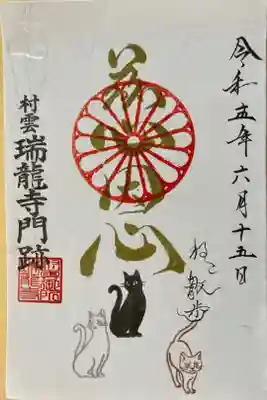 令和五年六月十五日
心
ねこ散歩
村雲
瑞龍寺門跡